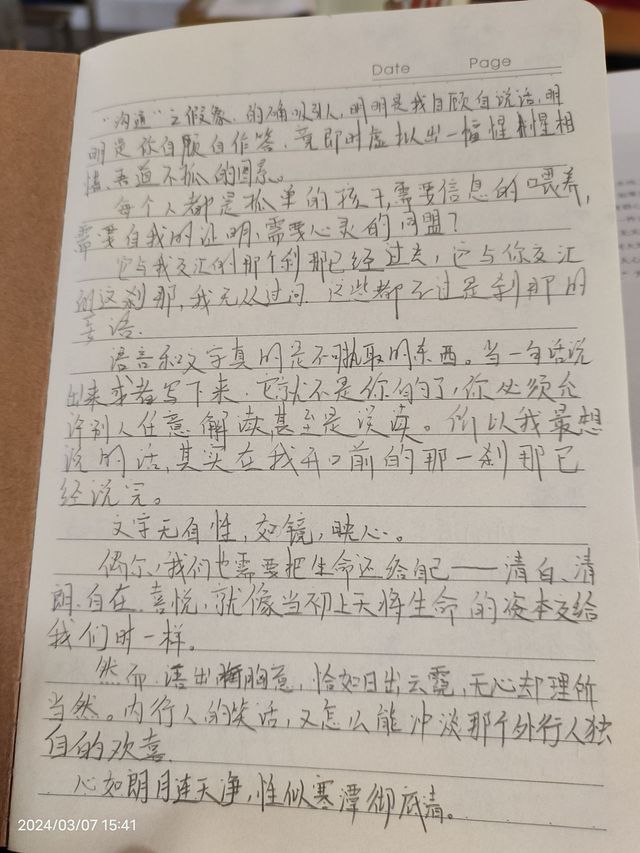 Date Page
“沟通”之假象，的确吸引人，明明是我自顾自说话，明
明是你自顾自作答，竟即时虚拟出一幅惺惺相
惜、吾道不孤的图景。
每个人都是孤单的孩子，需要信息的喂养，
需要自我的证明、需要心灵的同盟？
它与我交汇的那个刹那已经过去，它与你交汇
的这刹那，我无从过问，这些都不过是刹那的
妄语。
语言和文字真的是不可执取的东西。当一句话说
出来或者写下来，它就不是你的了，你必须允
许别人任意解读，甚至是误读。所以我最想
说的话，其实在我开口前的那一刹那已
经说完。
文字无自性，如镜，映心。
偶尔，我们也需要把生命还给自己——清白、清
朗、自在、喜悦，就像当初上天将生命的资本交给
我们时一样。
然而，语出胸意，恰如日出云霓，无心却理所
当然。内行人的笑话，又怎么能冲淡那个外行人独
自的欢喜
心如朗月连天净，性似寒潭彻底清。
2024/03/07 15:41